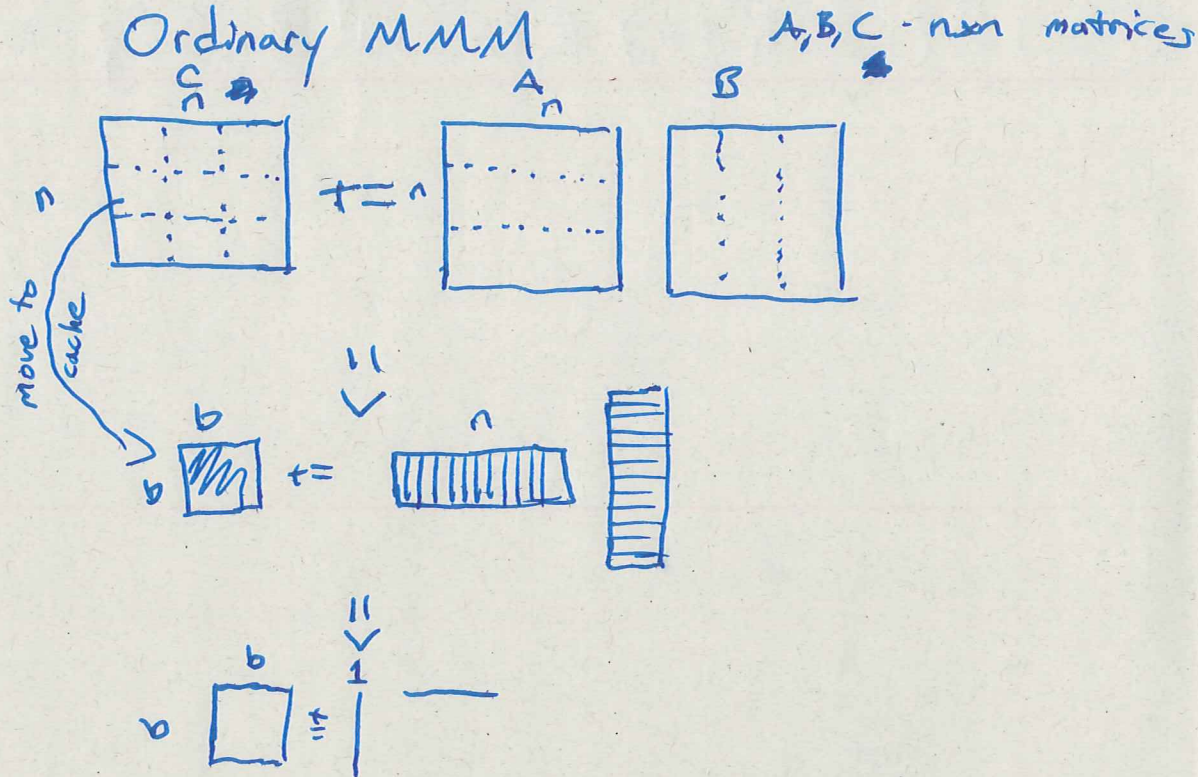 Ordinary MMM
A,B,C - nxn matrices
C A B
n n
n += n
move to
cache
b n
b +=
b 1
b +=